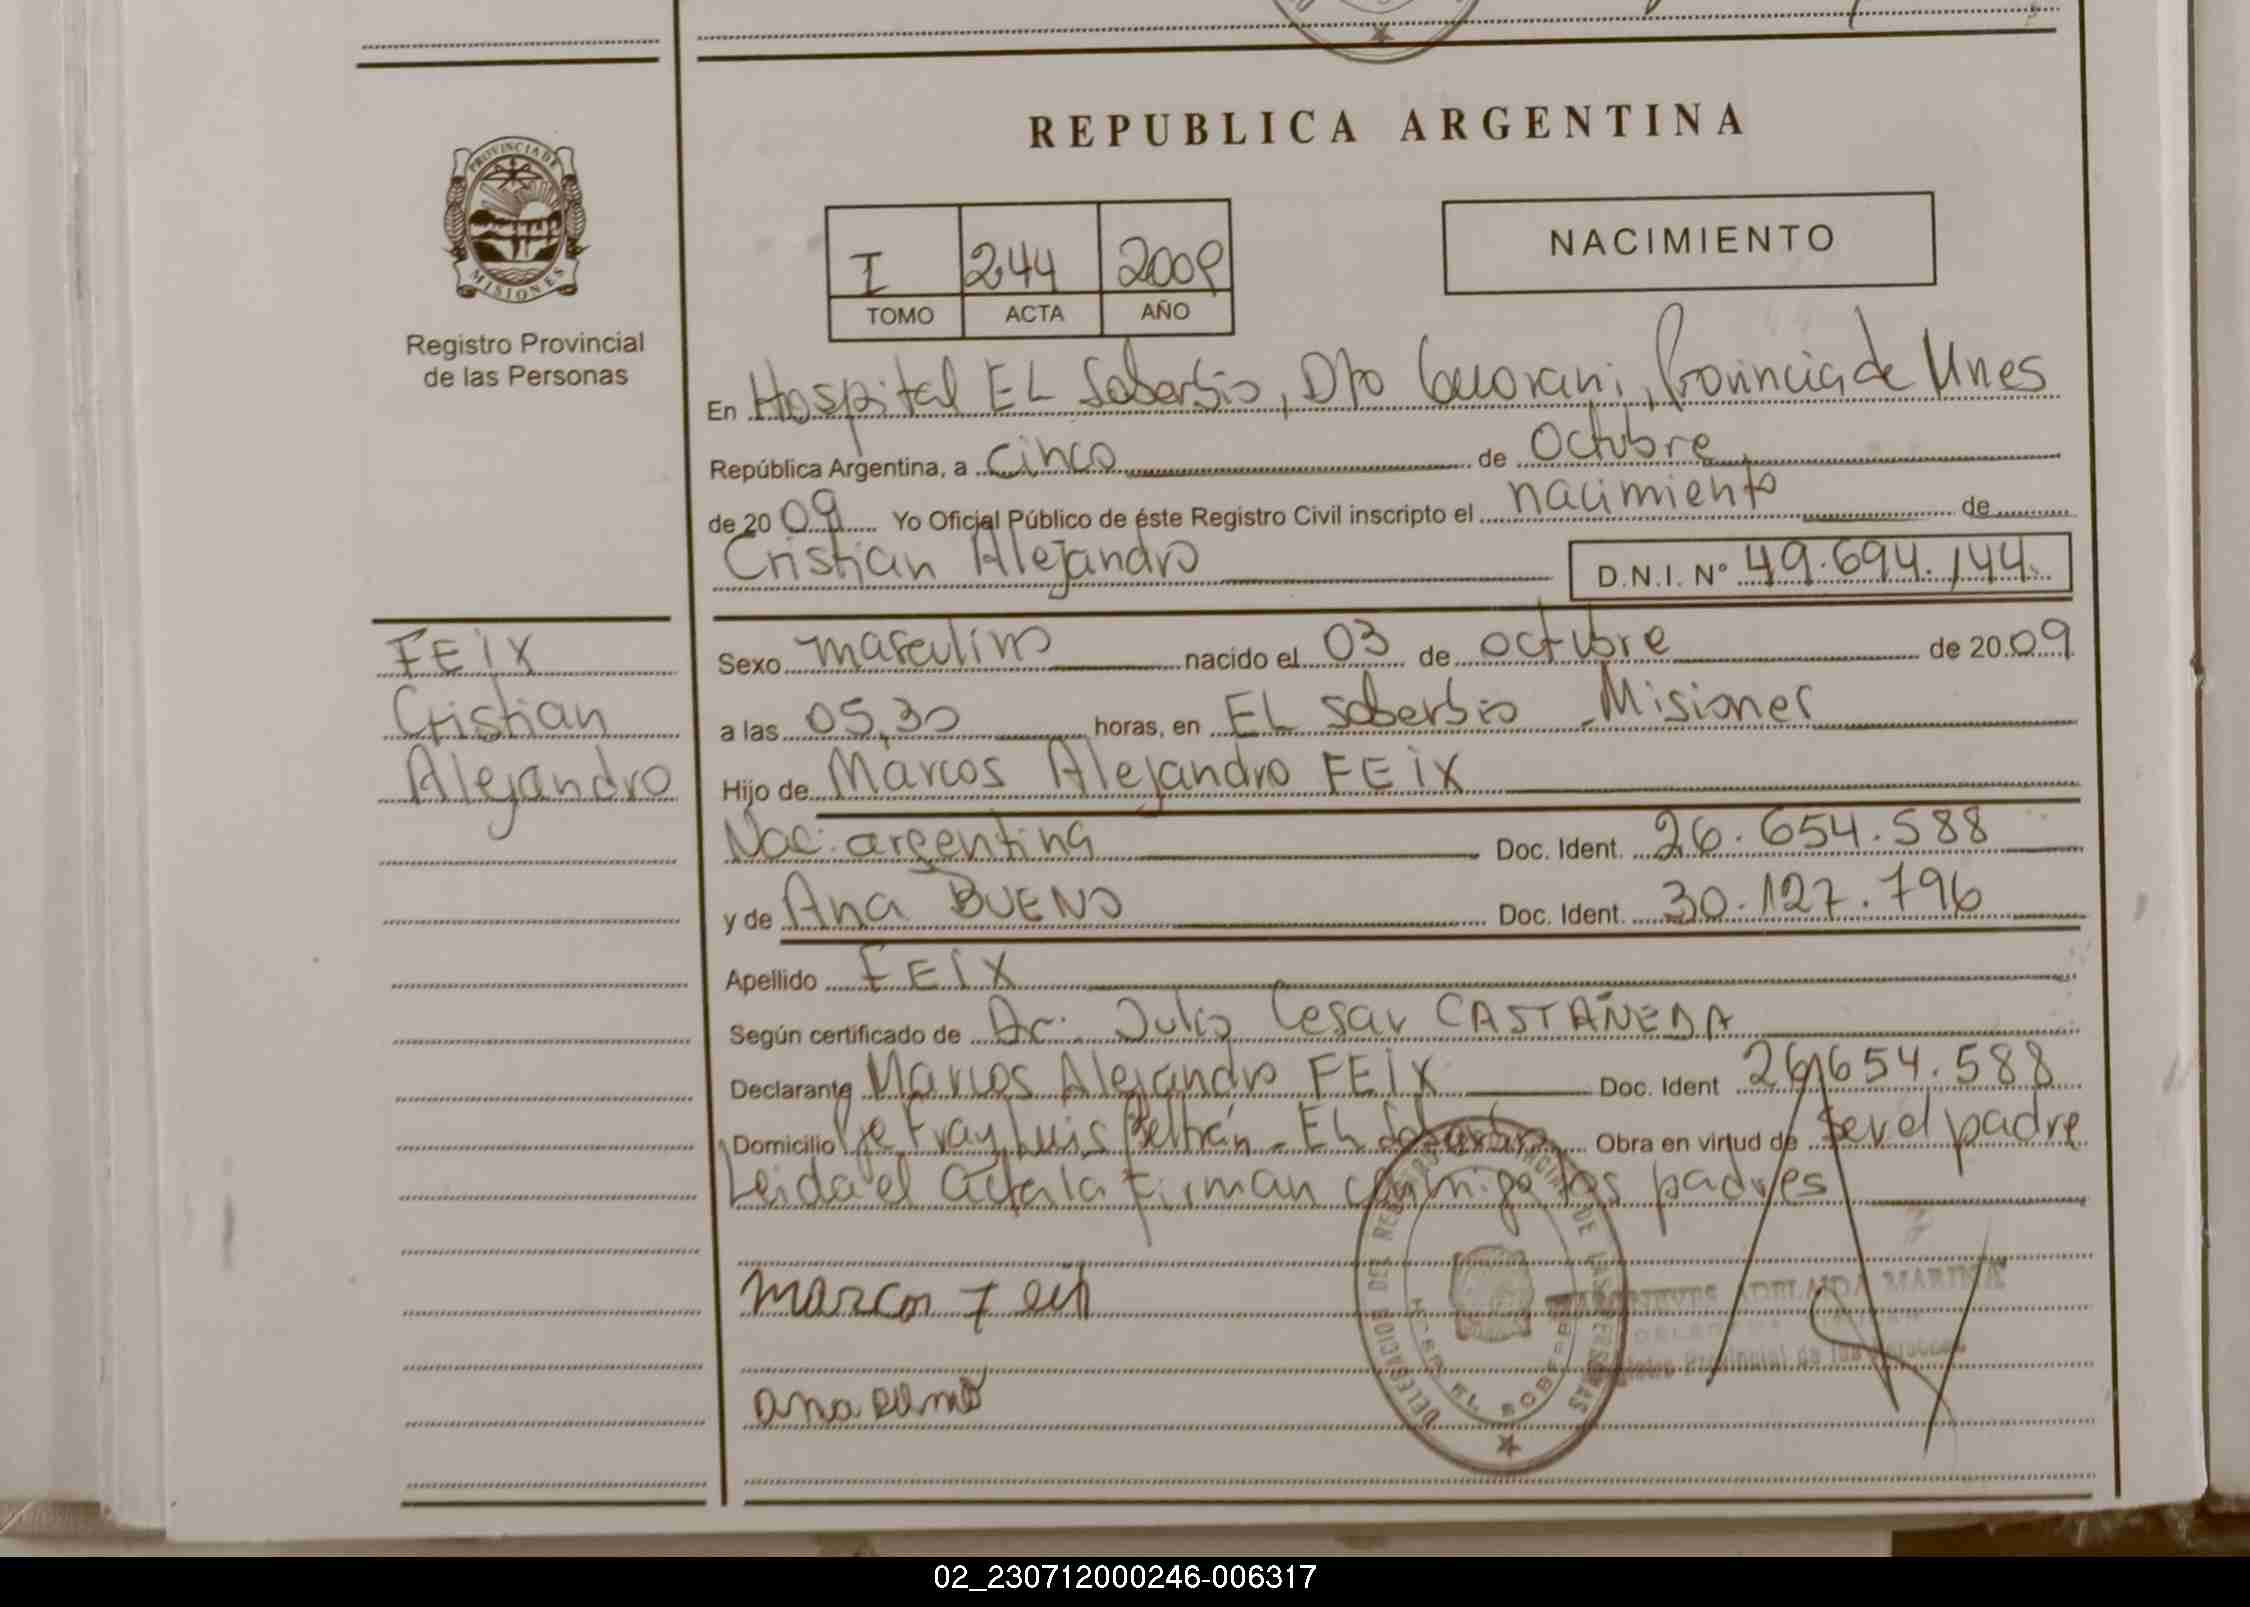 REPUBLICA ARGENTINA
PROVINCIA DE
MISIONES
Registro Provincial
de las Personas
I 244 2009
TOMO ACTA AÑO
NACIMIENTO
En Hospital EL Soberbio, Dpto Guarani, Provincia de Mnes
República Argentina, a cinco de Octubre
de 2009 Yo Oficial Público de éste Registro Civil inscripto el nacimiento de
Cristian Alejandro D.N.I. Nº 49.694.144
FEIX
Cristian
Alejandro
Sexo masculino nacido el 03 de octubre de 2009
a las 05,30 horas, en EL Soberbio - Misiones
Hijo de Marcos Alejandro FEIX
Nac. argentina Doc. Ident. 26.654.588
y de Ana BUENO Doc. Ident. 30.127.796
Apellido FEIX
Según certificado de Dr. Julio Cesar CASTAÑEDA
Declarante Marcos Alejandro FEIX Doc. Ident 26.654.588
Domicilio Fray Luis Beltrán - EL Soberbio Obra en virtud de ser el padre
Leida el acta la firman conmigo los padres
marcos Feix
ana
ADELAIDA MARINA
Registro Provincial de las Personas
DELEGACION DEL REGISTRO PROVINCIAL DE LAS PERSONAS
EL SOBERBIO
02_230712000246-006317